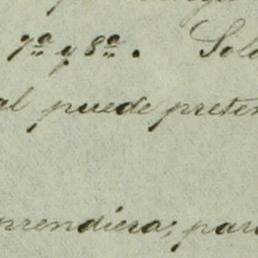 7ª y 8ª. Sola
al puede preten
prendiera; para